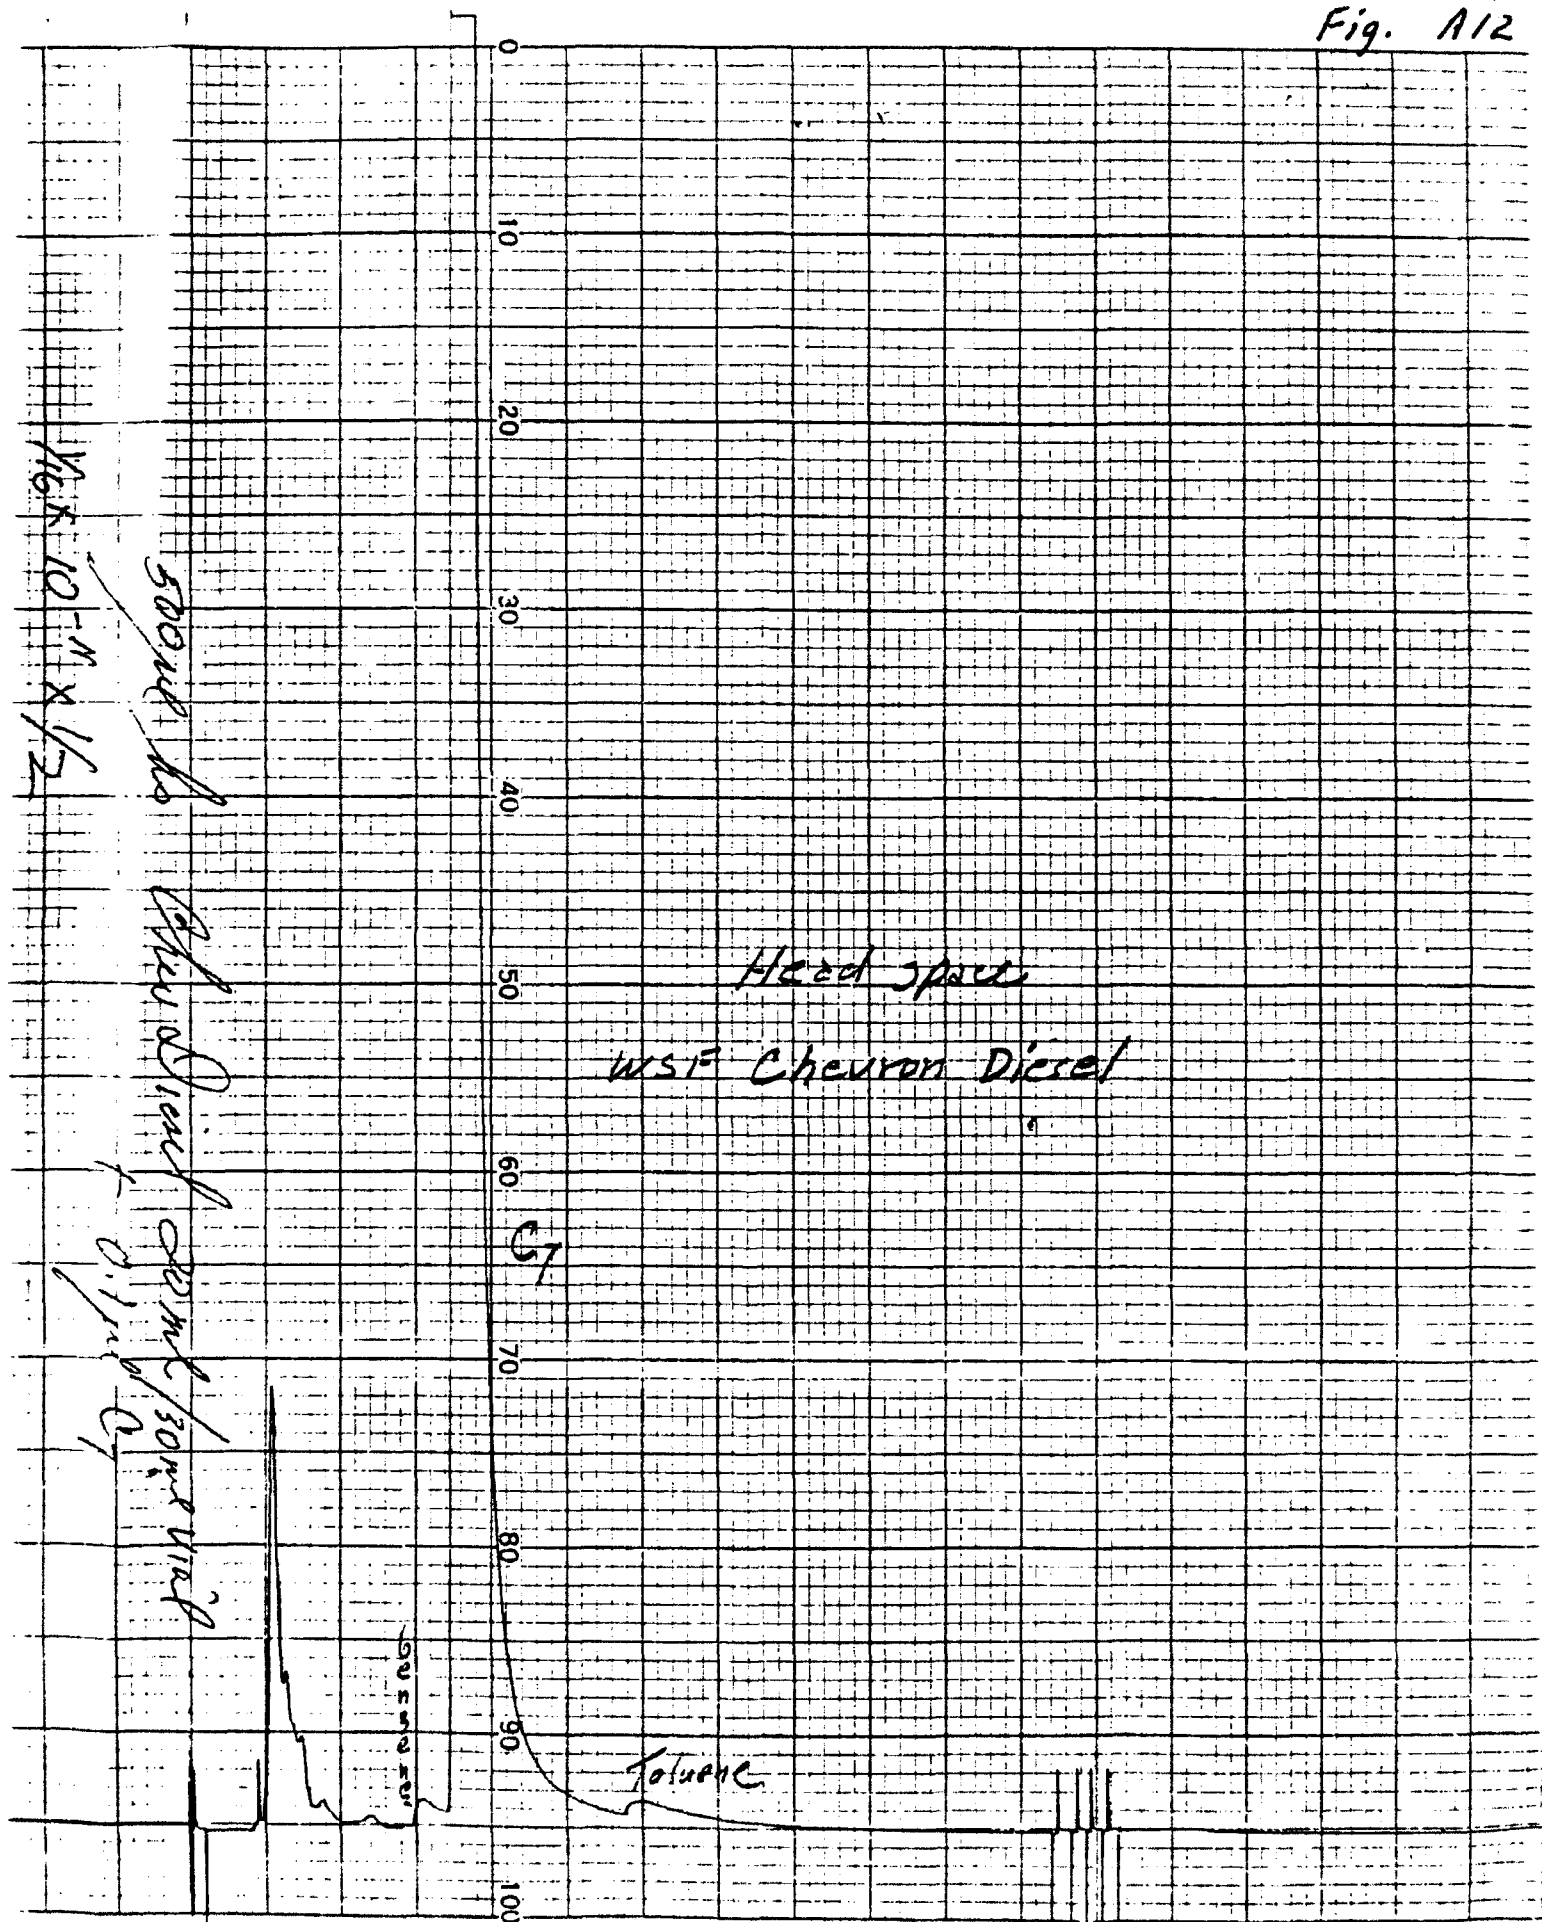 Fig. A12
0
10
20
30
40
50
60
70
80
90
100
Head space
WSF Chevron Diesel
C7
Toluene
Benzene
500 µl hs Chev Diesel 20 ml/30ml Vial
+ 0.1 µl C7
1/16 x 10-11 x 1/2